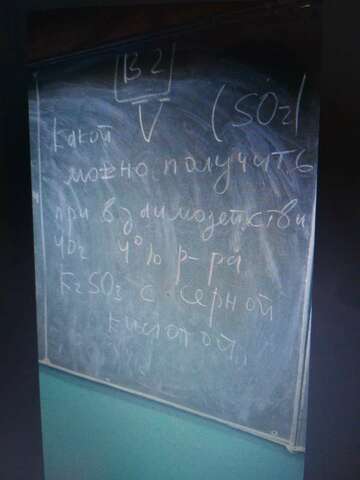 В2
Какой V (SO2)
можно получить
при взаимодействи
40г 4% р-ра
K2SO3 с серной
кислотой.